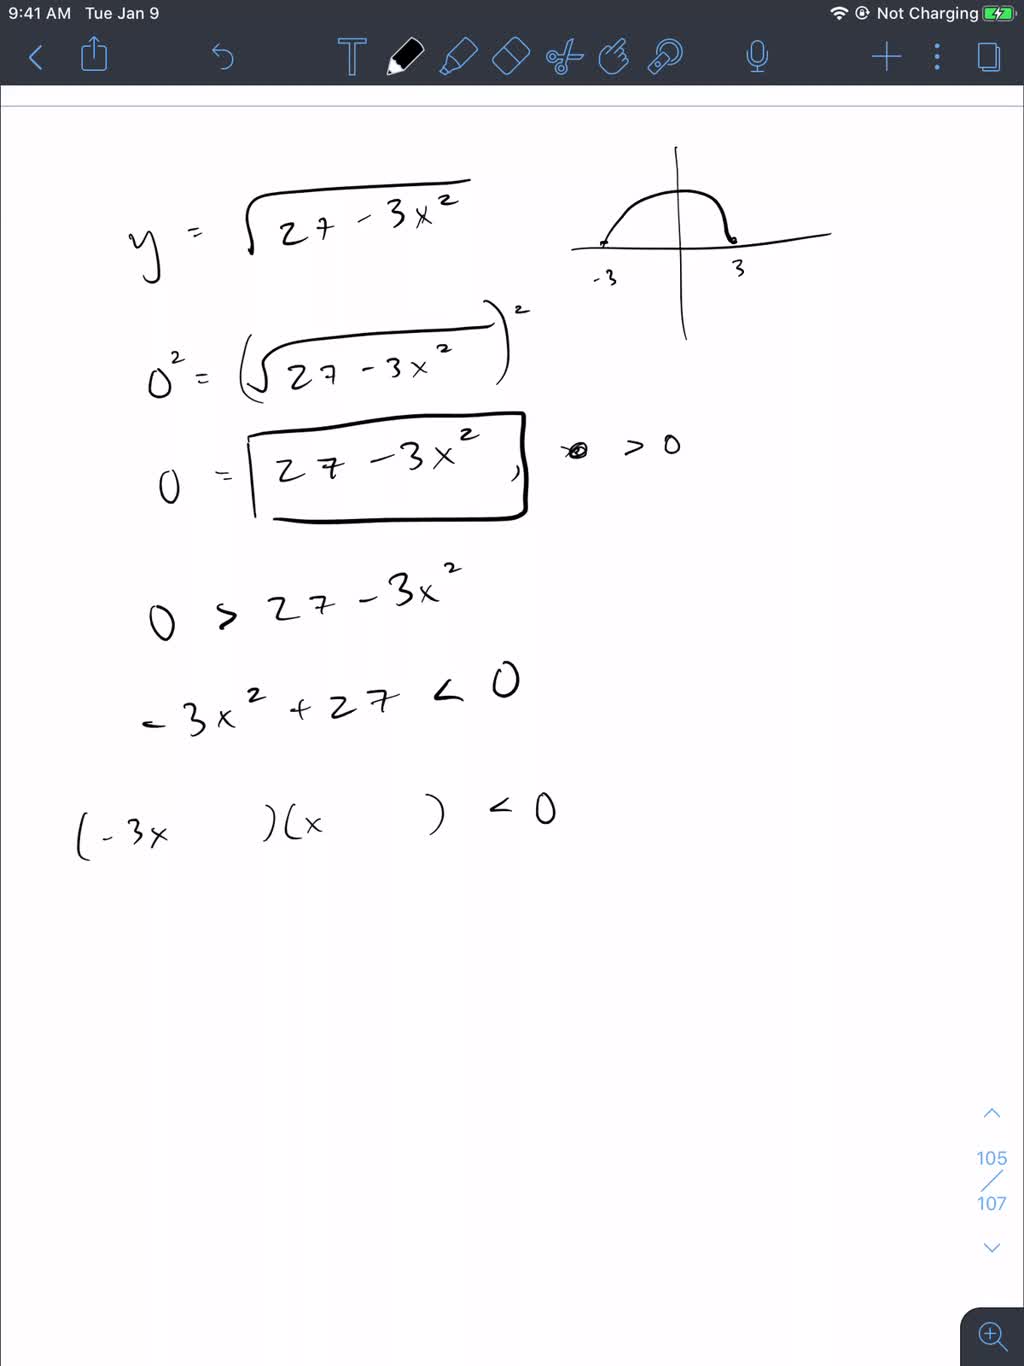 9:41 AM Tue Jan 9
Not Charging
T
y = √27 - 3x²
-3 3
0² = (√27 - 3x²)²
0 = 27 - 3x², > 0
0 > 27 - 3x²
-3x² + 27 < 0
(-3x )(x ) < 0
105
107